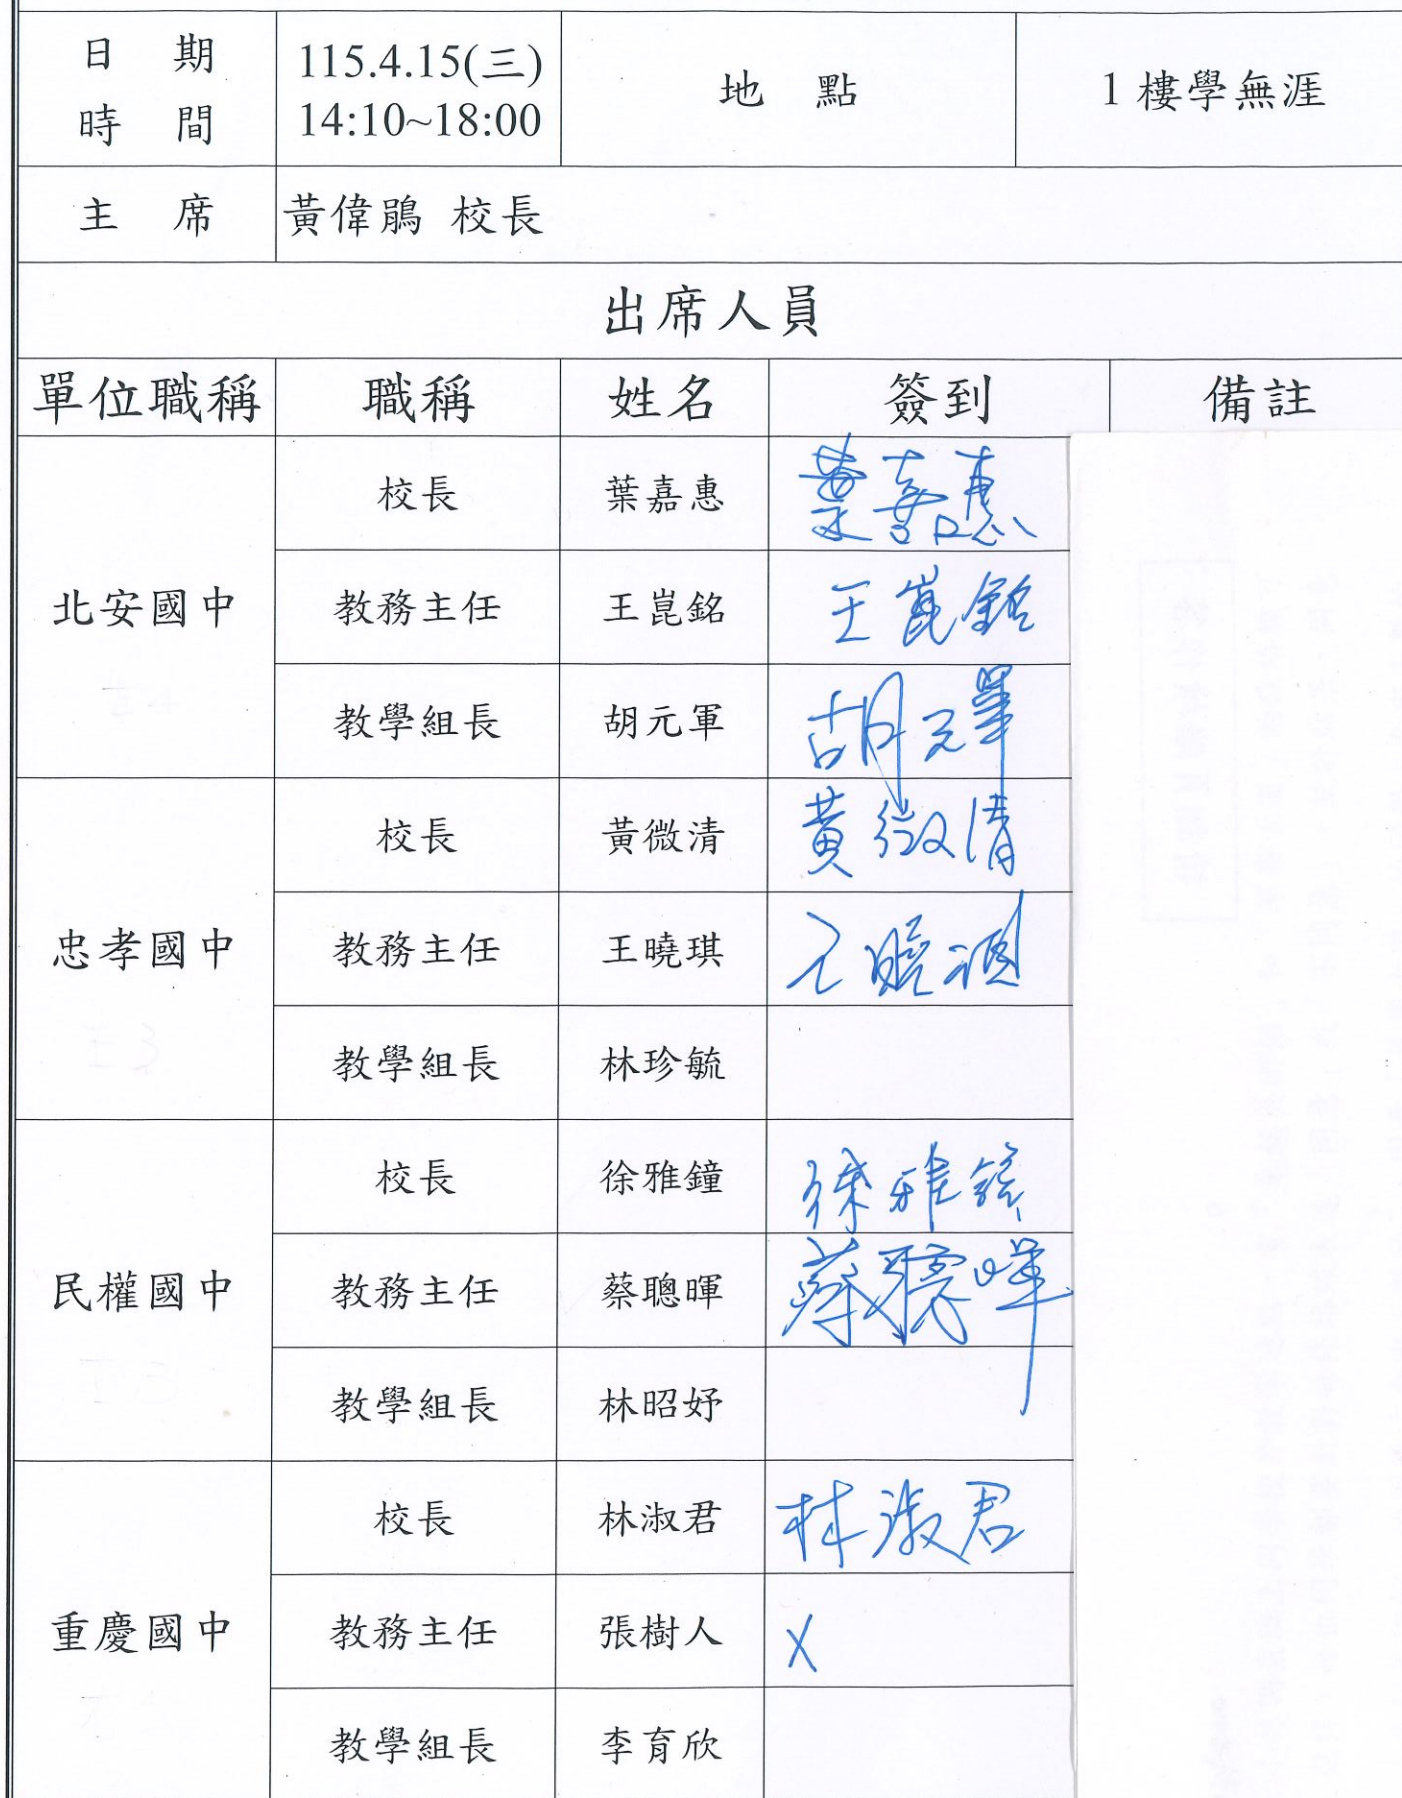 日期 時間 115.4.15(三) 14:10~18:00 地點 1樓學無涯
主席 黃偉鵑 校長
出席人員
單位職稱 職稱 姓名 簽到 備註
北安國中 校長 葉嘉惠 葉嘉惠
教務主任 王崑銘 王崑銘
教學組長 胡元軍 胡元軍
忠孝國中 校長 黃微清 黃微清
教務主任 王曉琪 王曉琪
教學組長 林珍毓
民權國中 校長 徐雅鐘 徐雅鐘
教務主任 蔡聰暉 蔡聰暉
教學組長 林昭妤
重慶國中 校長 林淑君 林淑君
教務主任 張樹人 X
教學組長 李育欣